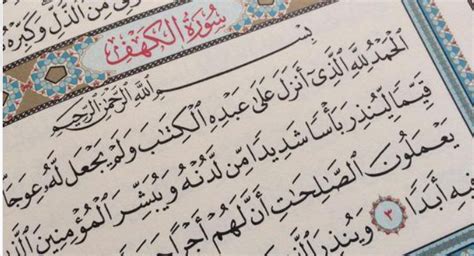 مِّنَ ٱلذُّلِّ وَكَبِّرْهُ
سُورَةُ الكَهْفِ
بِسْمِ ٱللَّهِ ٱلرَّحْمَٰنِ ٱلرَّحِيمِ
ٱلْحَمْدُ لِلَّهِ ٱلَّذِىٓ أَنزَلَ عَلَىٰ عَبْدِهِ ٱلْكِتَٰبَ وَلَمْ يَجْعَل لَّهُۥ عِوَجَا
قَيِّمًا لِّيُنذِرَ بَأْسًا شَدِيدًا مِّن لَّدُنْهُ وَيُبَشِّرَ ٱلْمُؤْمِنِينَ
يَعْمَلُونَ ٱلصَّٰلِحَٰتِ أَنَّ لَهُمْ أَجْرًا
فِيهِ أَبَدًا ٣ وَيُنذِرَ